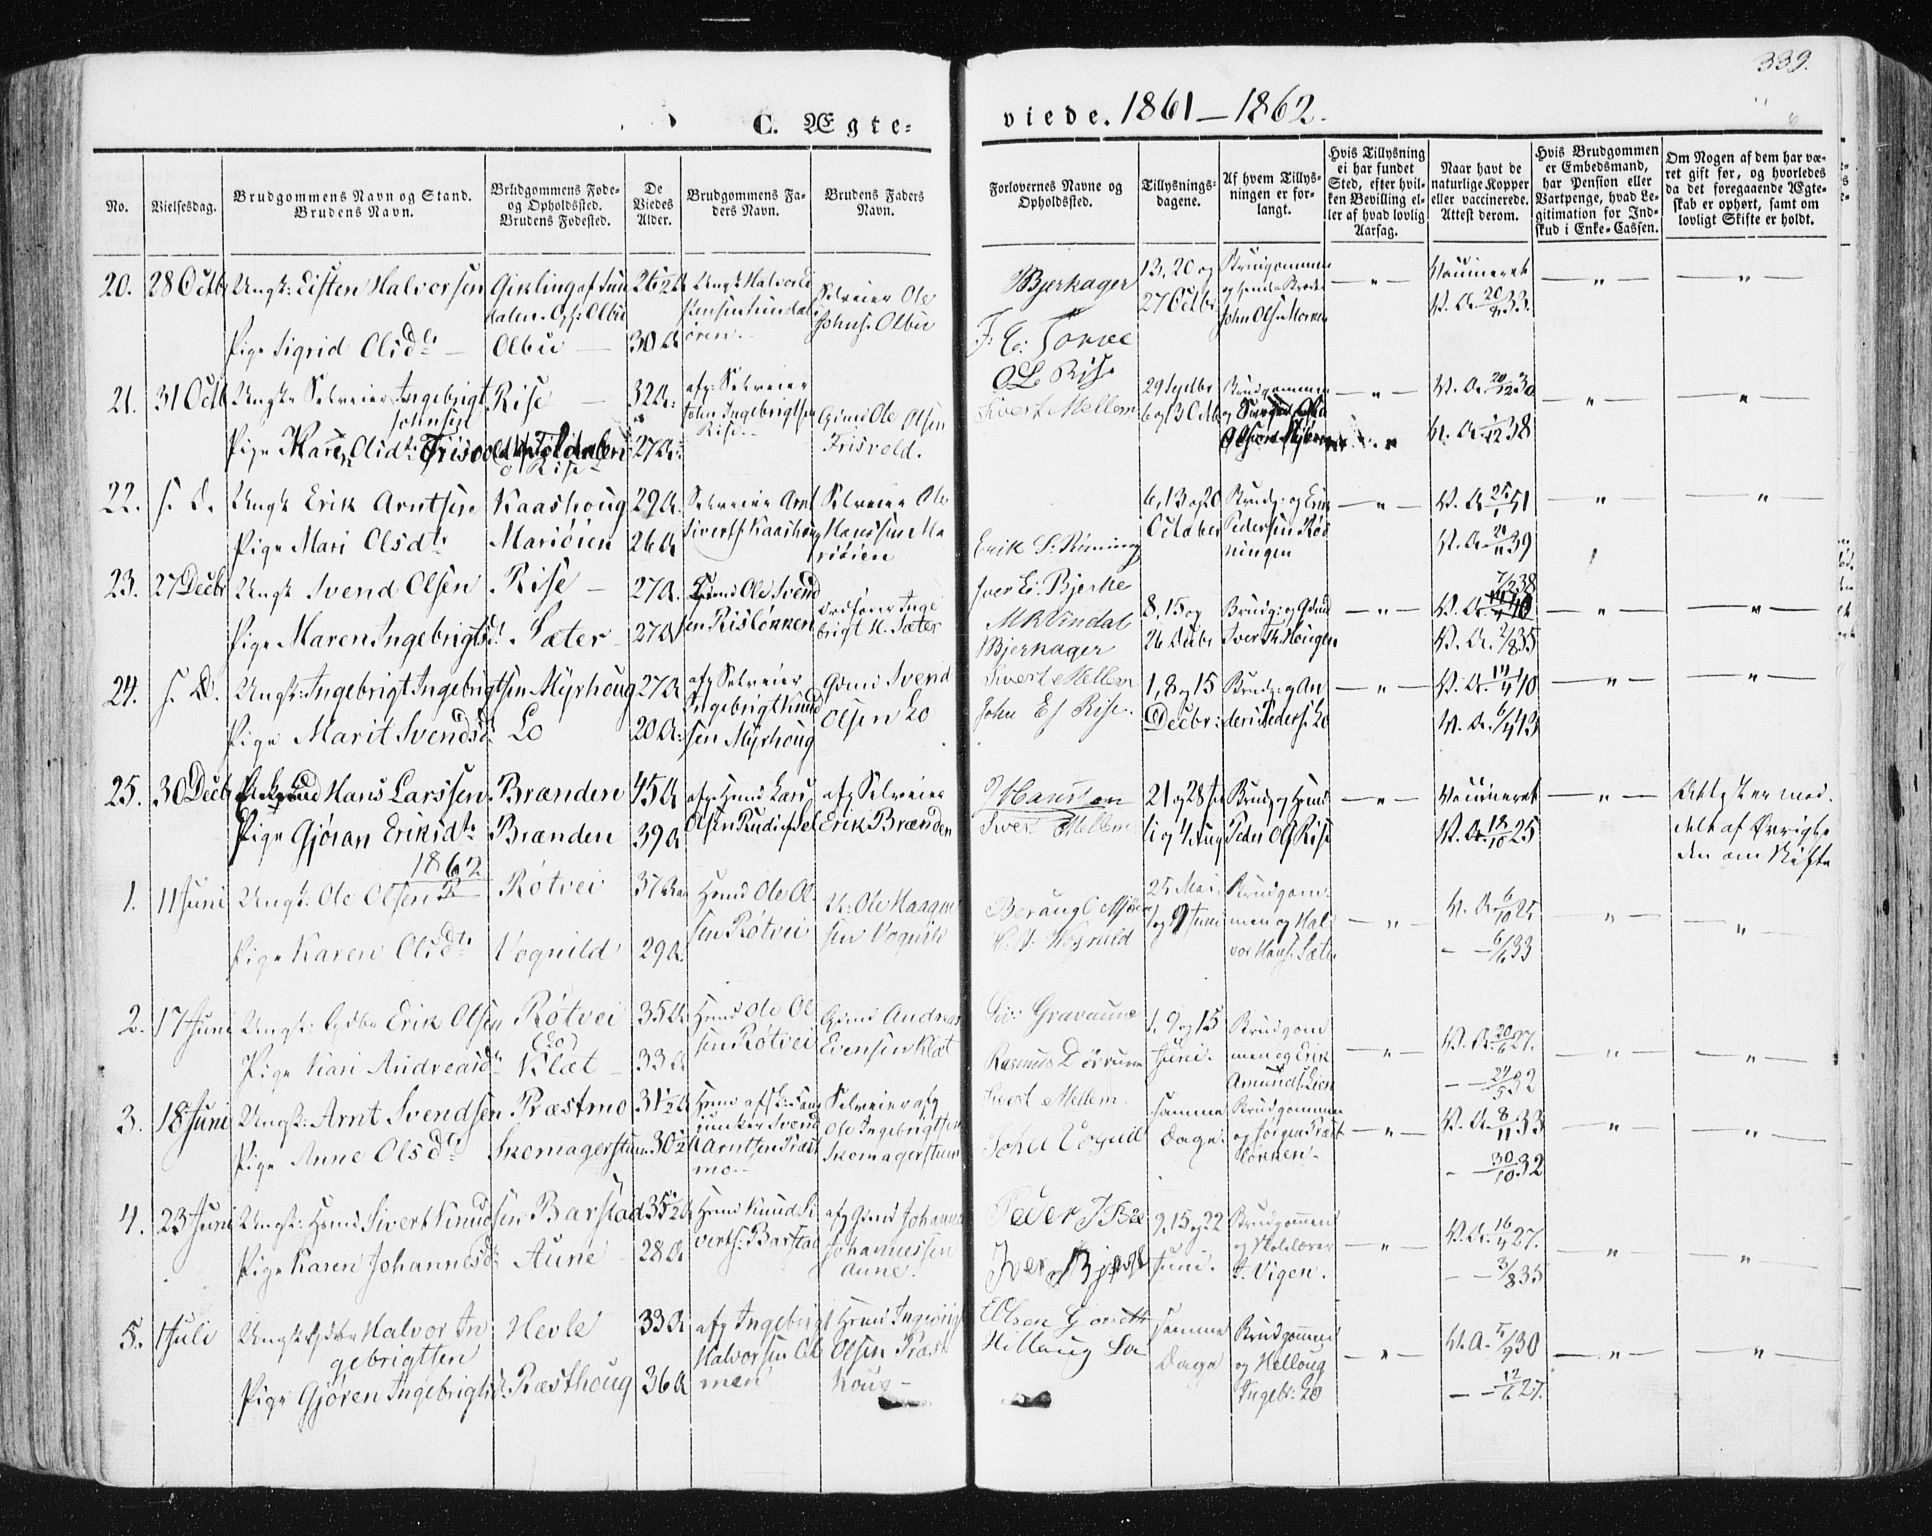 339.
C. Ægte=
viede. 1861–1862.
No.
Vielsesdag.
Brudgommens Navn og Stand.
Brudens Navn.
Brudgommens Føde-
og Opholdssted.
Brudens Fødested.
De
Viedes
Alder.
Brudgommens Fa-
ders Navn.
Brudens Faders
Navn.
Forlovernes Navne og
Opholdssted.
Tillysnings-
dagene.
Af hvem Tillys-
ningen er for-
langt.
Hvis Tillysning
ei har fundet
Sted, efter hvil-
ken Bevilling el-
ler af hvad lovlig
Aarsag.
Naar havt de
naturlige Kopper
eller vaccinerede.
Attest derom.
Hvis Brudgommen
er Embedsmand,
har Pension eller
Vartpenge, hvad Le-
gitimation for Ind-
skud i Enke-Cassen.
Om Nogen af dem har væ-
ret gift før, og hvorledes
da det foregaaende Ægte-
skab er ophørt, samt om
lovligt Skifte er holdt.
20. 28 Octb Ungk: Eisten Halvorsen
Pige Sigrid Olsdtr
Olbu
30 A
Selveier Ole
Johns. Olbu
Bjerkager
F. E. Torve
13, 20 og
27 Octbr
Brudgommen
John Ols. Morken
Vaccineret
V. A. 20/2 33
21. 31 Octb Ungk. Selveier Ingebrigt
Johnsen
Pige Karen Olsdtr
Rise
32 A
27 A
afg. Selveier
John Ingebrigtsen
Rise
Gmd Ole Olsen
Frisvold.
O L Rise
Sivert Mellem
29 Septbr
6 og 13 Octb
Brudgommen
V. A. 20/12 30
V. A. 1/12 38
22. s. D. Ungk Erik Arntsen
Pige Mari Olsdtr
Kaashoug
Mariöien
29 A
26 A
Selveier Arnt
Siverts. Kaashoug
Selveier Ole
Hanssen Ma
riöien
Erik S. Röning
6, 13 og 20
October
Brudg: og Erik
Pedersen Rös
ningen
V. A. 25/1 51
V. A. 20/11 39
23. 27 Decbr Ungk Svend Olsen
Pige Maren Ingebrigtsd.
Rise
Sæter
27 A
27 A
Gmd Ole Svend
sen Rislönnen
Ordfører Inge
brigt H. Sæter
Iver E: Bjerke
M K Vindal
8, 15 og
26 Decbr
Brudg: og Gmd
Iver H. Hougen
V. A. 2/8 35
24. s. D. Ungk: Ingebrigt Ingebrigtsen
Pige Marit Svendsd.
Myrhoug
Lo
27 A
20 A
afg Selveier
Ingebrigt Knud
sen Myrhoug
Gmd Svend
Olsen Lo
Bjerkager
Sivert Mellem
John Es Rise.
1, 8 og 15
Decbr:
Brudg: og An
ders Peders. Lo
V. A. 14/4 40
V. A. 6/4 43
25. 30 Decb Hans Larssen
Pige Gjöran Eriksdtr
Brænden
Brænden
45 A
39 A
afg. Hmd Lars
Olsen Rudi i Sel
afg Selveier
Erik Brænden
J Hanssen
Sivert Mellem
21 og 28 Juli
og 4 Aug
Brudg og Hmd
Peder Ols Rise
Vaccineret
V. A. 18/10 25
Attest er med-
delt af Øvrighe
den om Skifte
1862
1. 11 Juni Ungk: Ole Olsen
Pige Karen Olsdtr
Røtvei
Vognild
37 Aar
29 A.
Hmd Ole Ol
sen Røtvei
Ole Haagen
sen Vognild
25 Mai
1 og 9 Juni
Brudgom-
men og Hal
vor Hans. Sæter
V. A. 6/10 25
– – 6/6 33
2. 17 Juni Ungk: Erik Olsen
Pige Kari Andreasd.
Røtvei
(Lo)
Klæt
35 A
33 A
Hmd Ole Ol
sen Røtvei
Gmd Andreas
Evensen Klæt
Siv: Gravaune
Rasmus Dörrum
1. 9 og 15
Juni.
Brudgom
men og Erik
Amunds. Lien
V. A. 20/6 27.
– – 24/5 32
3. 18 Juni Ungk: Arnt Svendsen
Pige Anne Olsdtr
Præstmo
Skomagerstuen
31½ A
30½
Svend
Arntsen Præst
mo.
Selveier afg
Ole Ingebrigtsen
Skomagerstuen
Sivert Mellem.
John Vognild
samme
Dage.
Brudgommen
V. A. 8/11 33
– – 30/10 32
4. 23 Juni Ungk: Hmd Sivert Knudsen
Pige Karen Johannesd.
Barstad
Aune
35½ A
28 A
Hmd Knud Si
verts. Barstad
afg Gmd Johannes
Johannessen
Aune.
Peder J Bø
2, 15 og 22
Juni.
Brudgommen
og Skolelærer
Vigen.
V. A. 16/4 27.
– – 3/8 35
5. 1 Juli Ungk. Halvor In
gebrigtsen
Pige Gjören Ingebrigtsd.
Hevle
Ræsthoug
33 A
36 A
afg Ingebrigt
Halvorsen Ol
men
Hmd Ingebrigt
Olsen Præst
houg
EOlsen Gorseth
Hilloug Lo
samme
Dage
Brudgommen
og Helloug
Ingebr: Lo
V. A. 5/9 30
– – 12/6 27.